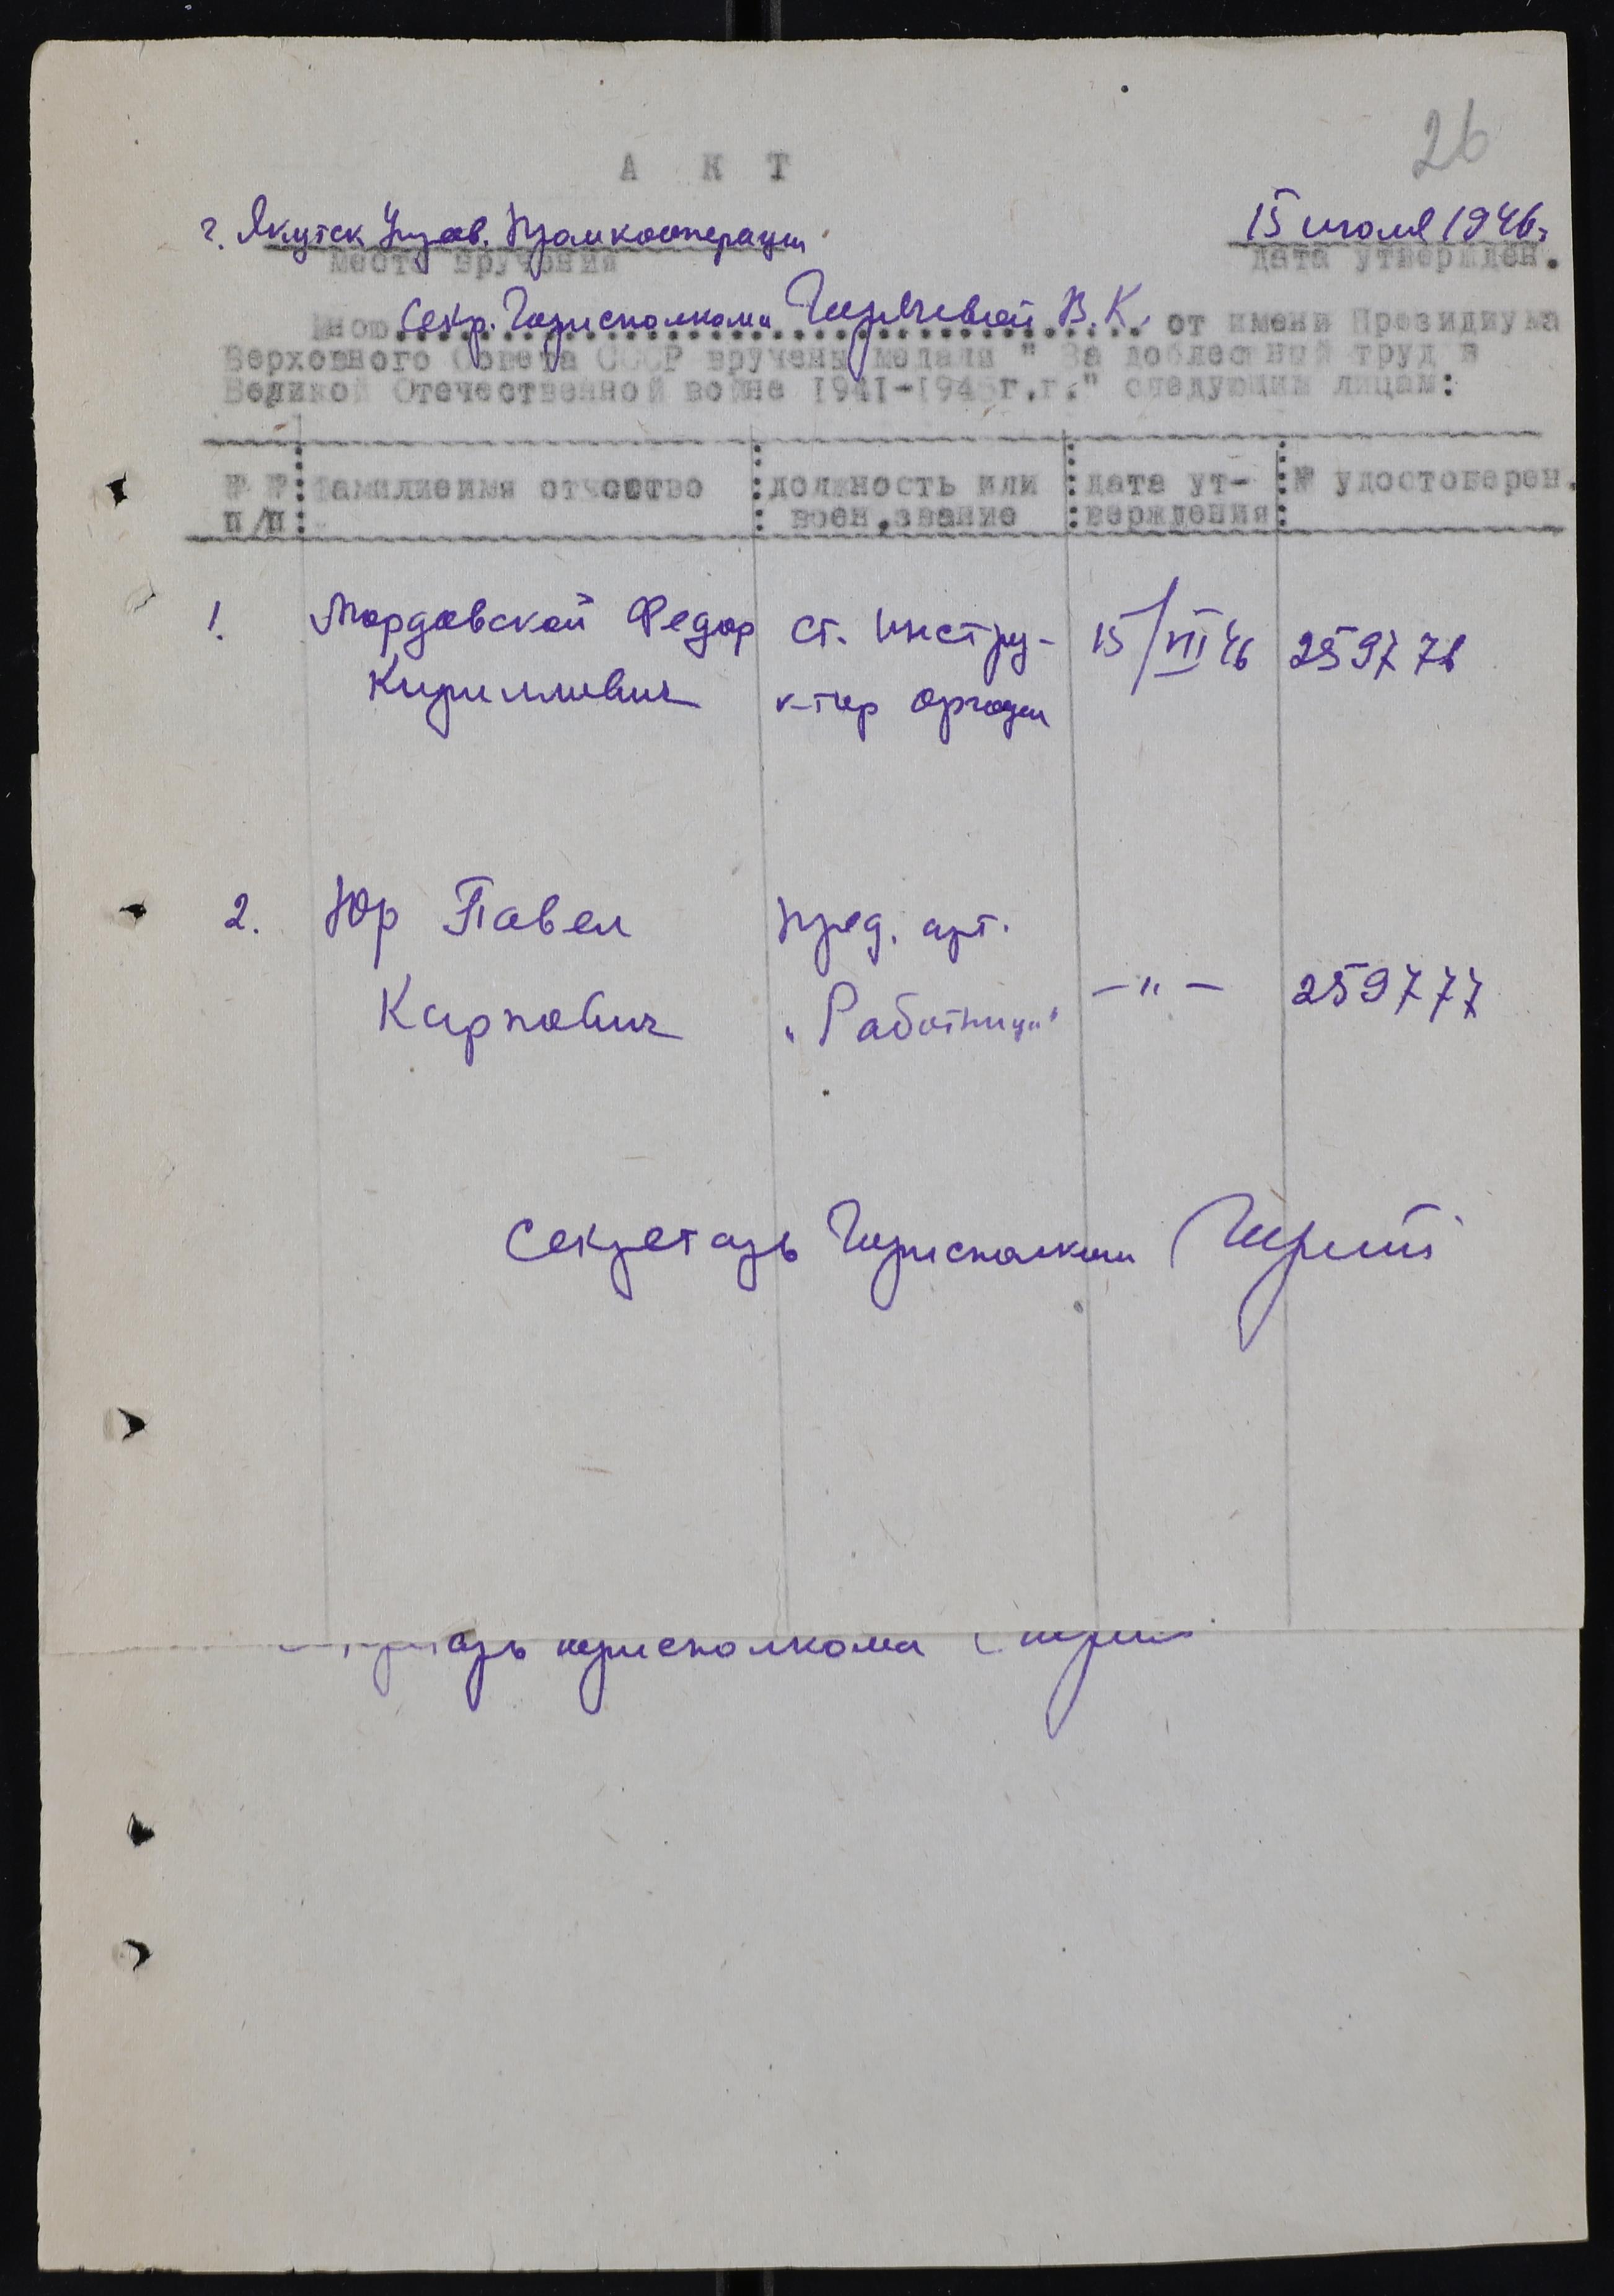 26
А К Т
г. Якутск Управ. Промкооперации
место вручения
15 июля 1946г.
дата утвержден.
Мною Секр. Горисполкома Горячевой В.К. от имени Президиума
Верховного Совета СССР вручены медали " За доблестный труд в
Великой Отечественной войне 1941-1945г.г." следующим лицам:
№ № п/п
фамилияимя отчество
должность или воен.звание
дата ут-верждения
№ удостоверен.
1. Мордовской Федор ст. инстру- 15/VII 46 259776
Кириллович к-тор
2. Юр Павел Пред. арт.
Карпович „Работница" -"- 259777
Секретарь Горисполкома
горисполкома